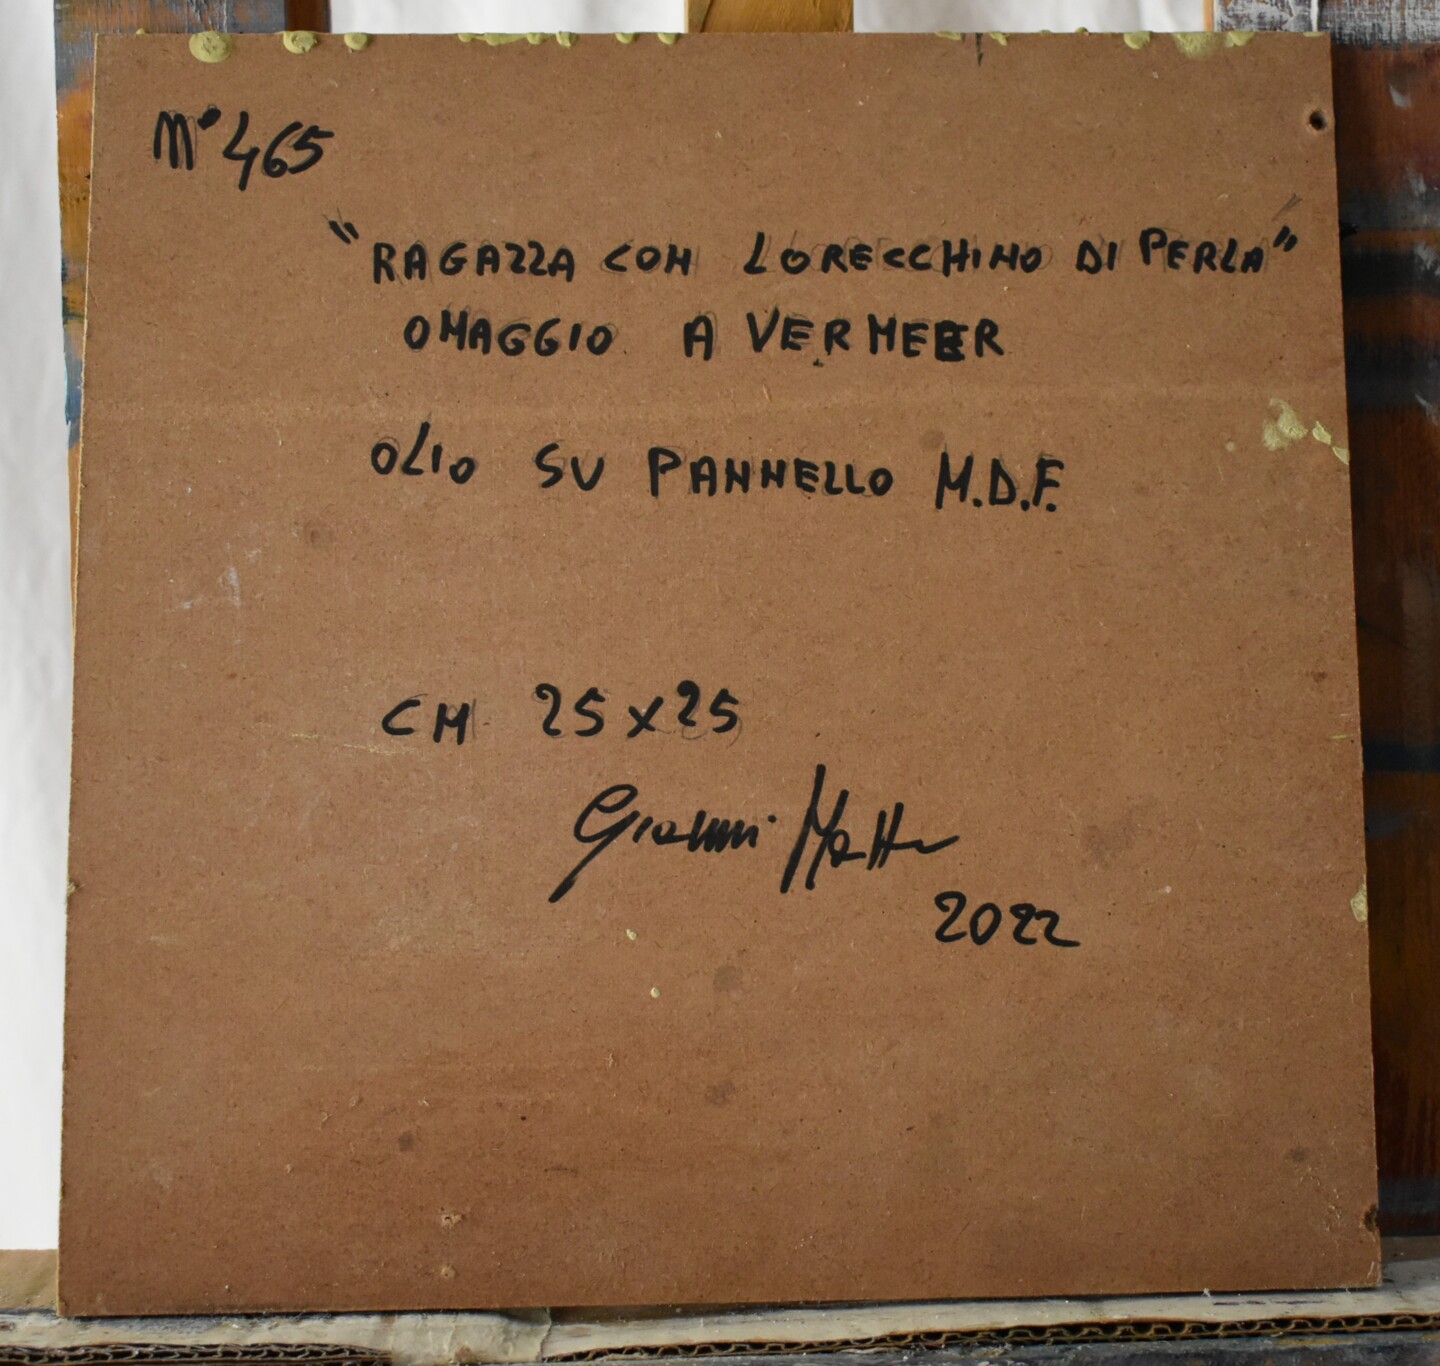 N° 465
"RAGAZZA CON LORECCHINO DI PERLA"
OMAGGIO A VERMEER
OLIO SU PANNELLO M.D.F.
CM 25x25
Gianni
2022